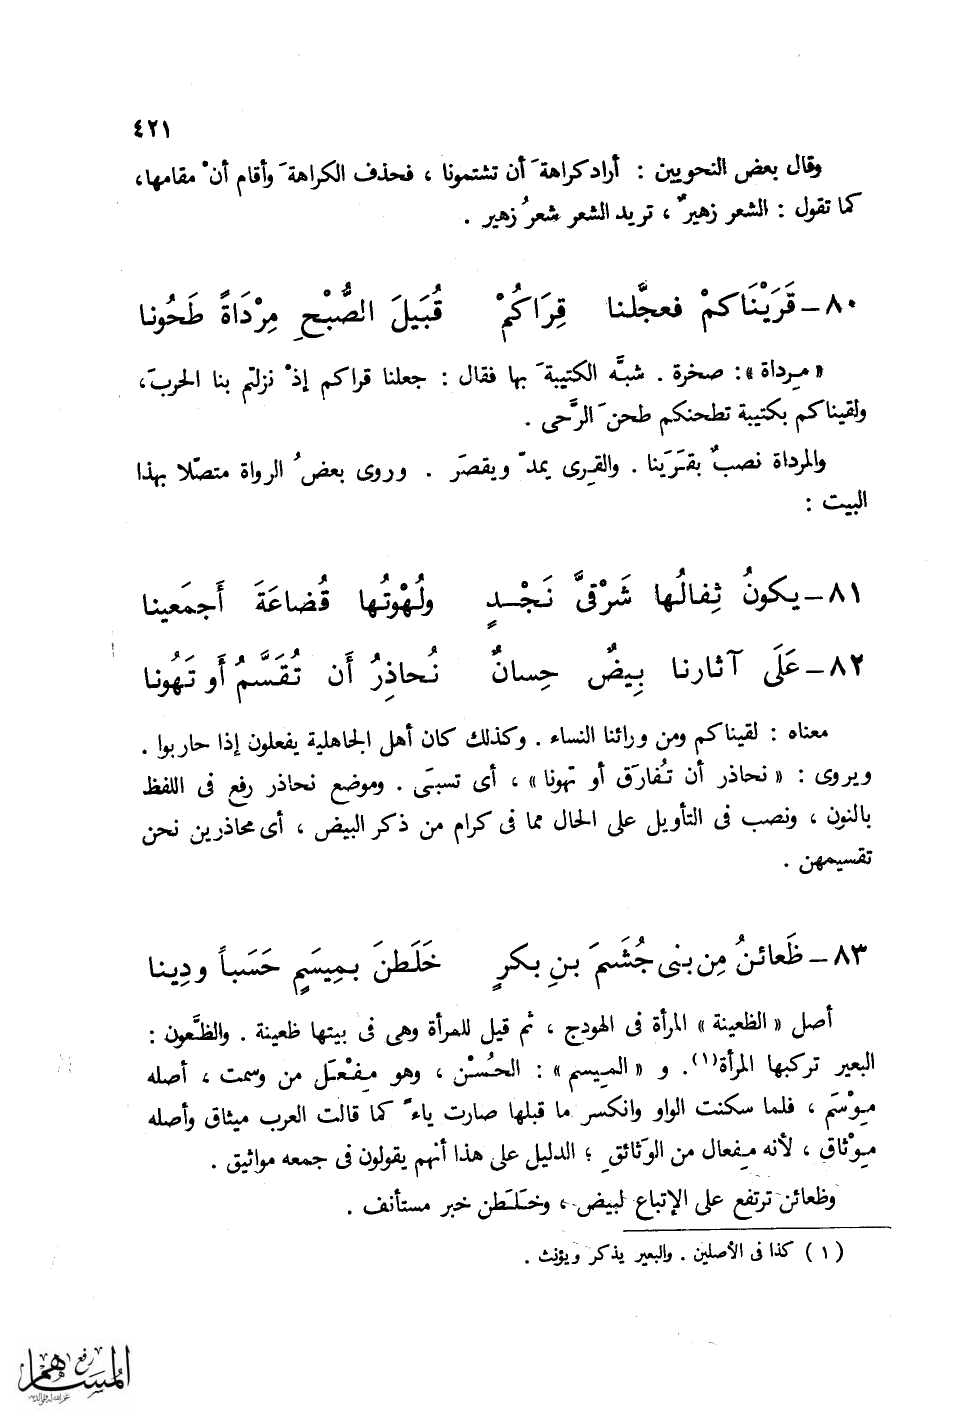 ٤٢١
وقال بعض النحويين : أراد كراهةَ أن تشتمونا ، فحذف الكراهةَ وأقام أنْ مقامها،
كما تقول : الشعر زهيرٌ ، تريد الشعر شعرُ زهير .
٨٠ – قَرَيْنَاكمْ فعجَّلنا قِرَاكُمْ قُبَيلَ الصُّبْحِ مِرْدَاةً طَحُونا
« مِرداة » : صخرة . شبَّه الكتيبةَ بها فقال : جعلنا قراكم إذْ نزلتم بنا الحربَ،
ولقيناكم بكتيبة تطحنكم طحنَ الرَّحى .
والمرداة نصبٌ بقَرَينا . والقِرى يمدّ ويقصَر . وروى بعضُ الرواة متصّلا بهذا
البيت :
٨١ – يكونُ ثِفالُها شَرْقىَّ نَجْدٍ ولُهْوتُها قُضاعَةَ أَجمَعينا
٨٢ – عَلَى آثارنا بِيضٌ حِسانٌ نُحاذِرُ أَن تُقَسَّمُ أَو تَهُونا
معناه : لقيناكم ومن ورائنا النساء . وكذلك كان أهل الجاهلية يفعلون إذا حاربوا .
ويروى : « نحاذر أن تُفارَق أو تهونا » ، أى تسبَى . وموضع نحاذر رفع فى اللفظ
بالنون ، ونصب فى التأويل على الحال مما فى كرام من ذكر البيض ، أى محاذرين نحن
تقسيمهن .
٨٣ – ظَعائنُ مِن بنى جُشَمَ بنِ بكرٍ خَلَطنَ بميسَمٍ حَسَباً ودِينا
أصل « الظعينة » المرأة فى الهودج ، ثم قيل للمرأة وهى فى بيتها ظعينة . والظَّعون :
البعير تركبها المرأة(١). و « المِيسم » : الحُسْن ، وهو مِفْعَل من وسمت ، أصله
مِوْسَم ، فلما سكنت الواو وانكسر ما قبلها صارت ياءً كما قالت العرب ميثاق وأصله
مِوْثاق ، لأنه مِفعال من الوَثائقِ ؛ الدليل على هذا أنهم يقولون فى جمعه مواثيق .
وظعائن ترتفع على الإتباع لبيض ، وخَلَطن خبر مستأنف .
(١) كذا فى الأصلين . والبعير يذكر ويؤنث .
رفع
المساهم